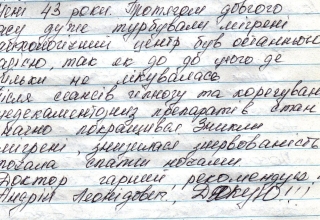 Мені 43 роки. Протягом довгого
часу дуже турбували мігрені
центр був останньою
надією, так як до до цього де
тільки не лікувалась
після сеансів гіпнозу та корегуван
медекаментозних препаратів стан
значно покращився. Зникли
мігрені, знизилася знервованість
почала спати ночами
Доктор гарний рекомендую!
Андрій Леонідович, Дякую!!!